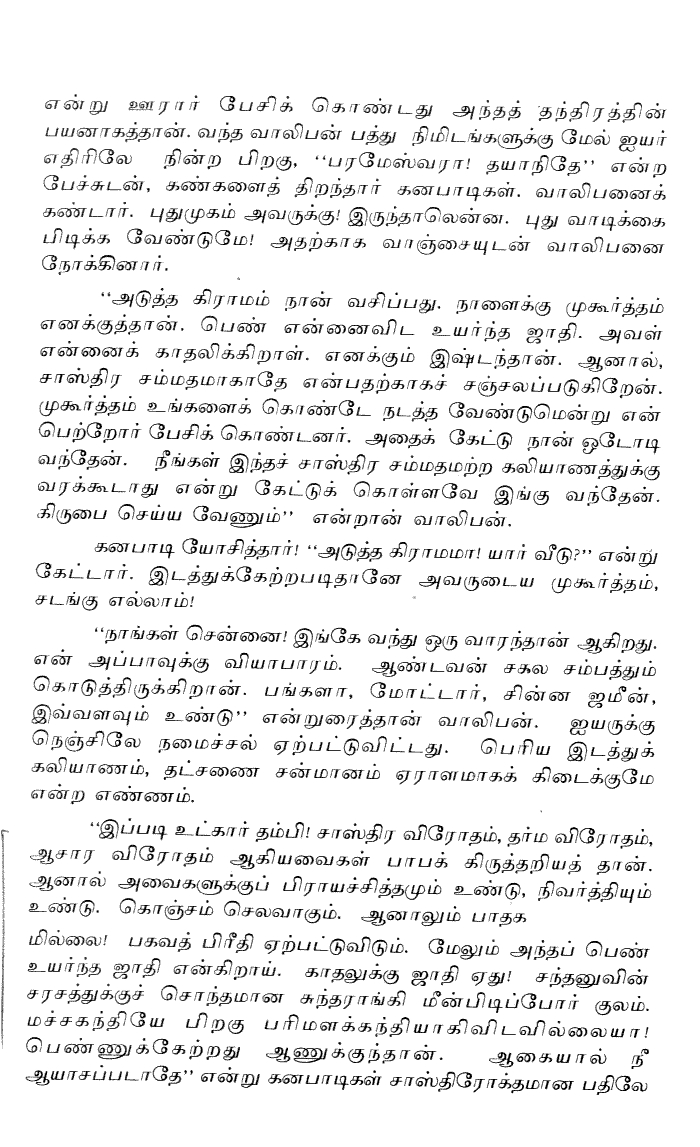 என்று ஊரார் பேசிக் கொண்டது அந்தத் தந்திரத்தின்
பயனாகத்தான். வந்த வாலிபன் பத்து நிமிடங்களுக்கு மேல் ஐயர்
எதிரிலே நின்ற பிறகு, “பரமேஸ்வரா! தயாநிதே” என்ற
பேச்சுடன், கண்களைத் திறந்தார் கனபாடிகள். வாலிபனைக்
கண்டார். புதுமுகம் அவருக்கு! இருந்தாலென்ன. புது வாடிக்கை
பிடிக்க வேண்டுமே! அதற்காக வாஞ்சையுடன் வாலிபனை
நோக்கினார்.
“அடுத்த கிராமம் நான் வசிப்பது. நாளைக்கு முகூர்த்தம்
எனக்குத்தான். பெண் என்னைவிட உயர்ந்த ஜாதி. அவள்
என்னைக் காதலிக்கிறாள். எனக்கும் இஷ்டந்தான். ஆனால்,
சாஸ்திர சம்மதமாகாதே என்பதற்காகச் சஞ்சலப்படுகிறேன்.
முகூர்த்தம் உங்களைக் கொண்டே நடத்த வேண்டுமென்று என்
பெற்றோர் பேசிக் கொண்டனர். அதைக் கேட்டு நான் ஓடோடி
வந்தேன். நீங்கள் இந்தச் சாஸ்திர சம்மதமற்ற கலியாணத்துக்கு
வரக்கூடாது என்று கேட்டுக் கொள்ளவே இங்கு வந்தேன்.
கிருபை செய்ய வேணும்” என்றான் வாலிபன்.
கனபாடி யோசித்தார்! “அடுத்த கிராமமா! யார் வீடு?” என்று
கேட்டார். இடத்துக்கேற்றபடிதானே அவருடைய முகூர்த்தம்,
சடங்கு எல்லாம்!
“நாங்கள் சென்னை! இங்கே வந்து ஒரு வாரந்தான் ஆகிறது.
என் அப்பாவுக்கு வியாபாரம். ஆண்டவன் சகல சம்பத்தும்
கொடுத்திருக்கிறான். பங்களா, மோட்டார், சின்ன ஜமீன்,
இவ்வளவும் உண்டு” என்றுரைத்தான் வாலிபன். ஐயருக்கு
நெஞ்சிலே நமைச்சல் ஏற்பட்டுவிட்டது. பெரிய இடத்துக்
கலியாணம், தட்சணை சன்மானம் ஏராளமாகக் கிடைக்குமே
என்ற எண்ணம்.
“இப்படி உட்கார் தம்பி! சாஸ்திர விரோதம், தர்ம விரோதம்,
ஆசார விரோதம் ஆகியவைகள் பாபக் கிருத்தறியத் தான்.
ஆனால் அவைகளுக்குப் பிராயச்சித்தமும் உண்டு, நிவர்த்தியும்
உண்டு. கொஞ்சம் செலவாகும். ஆனாலும் பாதக
மில்லை! பகவத் பிரீதி ஏற்பட்டுவிடும். மேலும் அந்தப் பெண்
உயர்ந்த ஜாதி என்கிறாய். காதலுக்கு ஜாதி ஏது! சந்தனுவின்
சரசத்துக்குச் சொந்தமான சுந்தராங்கி மீன்பிடிப்போர் குலம்.
மச்சகந்தியே பிறகு பரிமளக்கந்தியாகிவிடவில்லையா!
பெண்ணுக்கேற்றது ஆணுக்குந்தான். ஆகையால் நீ
ஆயாசப்படாதே” என்று கனபாடிகள் சாஸ்திரோக்தமான பதிலே